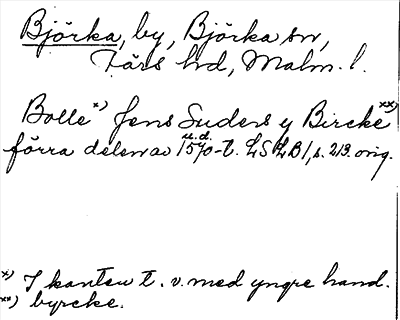 Björka, by, Björka sn,
Färs hd, Malm. l.
Bolle *) Jens Suders y Bircke **)
förra delen av 1570-t. u.d. LSLB1, s. 213. orig.
*) I kanten t. v. med yngre hand.
**) byrcke.